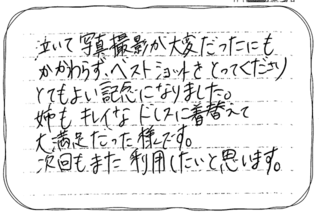 泣いて写真撮影が大変だったにも
かかわらず、ベストショットをとってくださり
とてもよい記念になりました。
姉もキレイなドレスに着替えて
大満足だった様です。
次回もまた利用したいと思います。